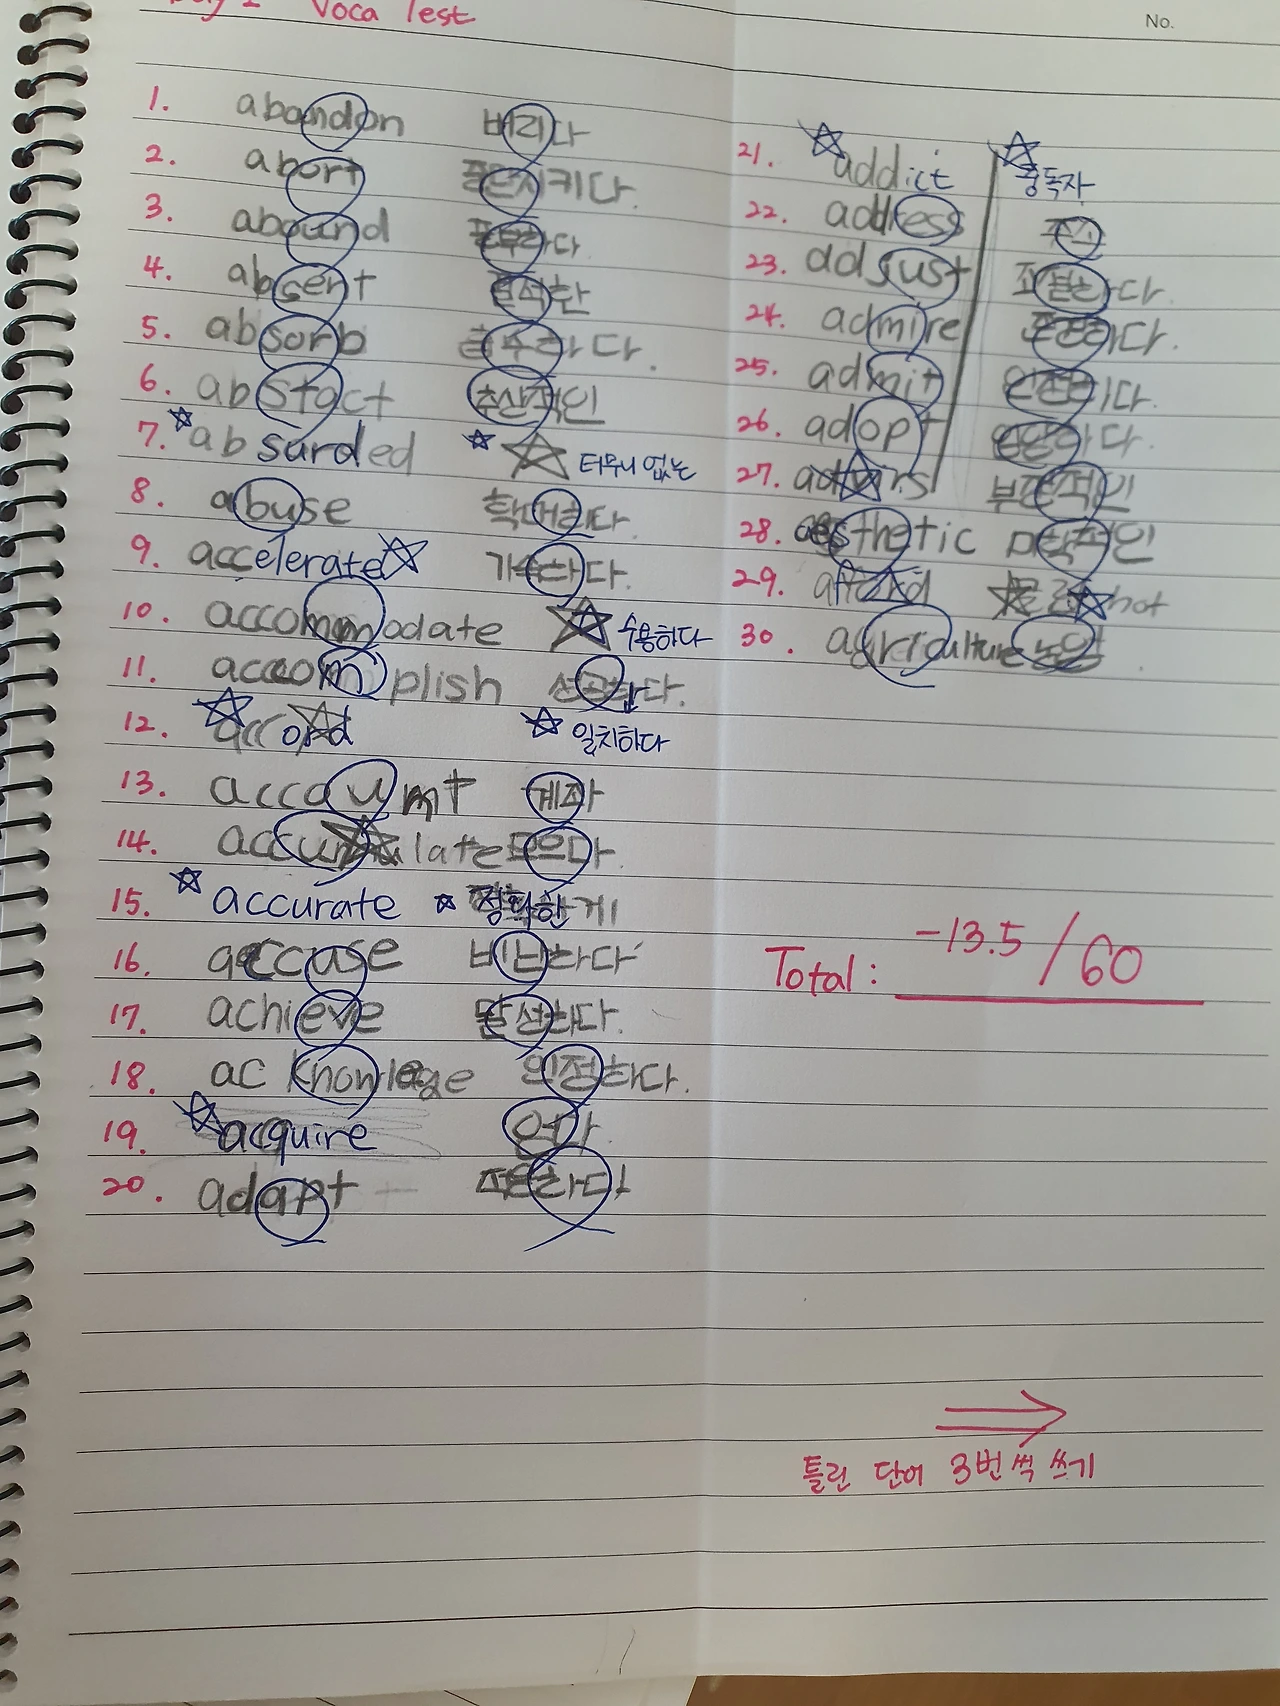 Voca Test
No.
1. abandon 버리다
2. abort 시키다.
3. abound 풍부하다.
4. absent 결석한
5. absorb 흡수하다.
6. abstact 추상적인
7. absurded 터무니 없는
8. abuse 학대하다.
9. accelerate 가속하다.
10. accommodate 수용하다
11. accomplish 성공하다.
12. accord 일치하다
13. account 계좌
14. accumulate 모으다.
15. accurate 정확한
16. accuse 비난하다
17. achieve 달성하다.
18. acknowlege 인정하다.
19. acquire 얻다.
20. adapt 적응하다
21. addict 중독자
22. address 주소
23. adjust 조절하다.
24. admire 존경하다.
25. admit 인정하다.
26. adopt 입양하다.
27.
28. aesthetic 미학적인
29. afford
30. agriculture 농업.
Total: -13.5/60
틀린 단어 3번씩 쓰기